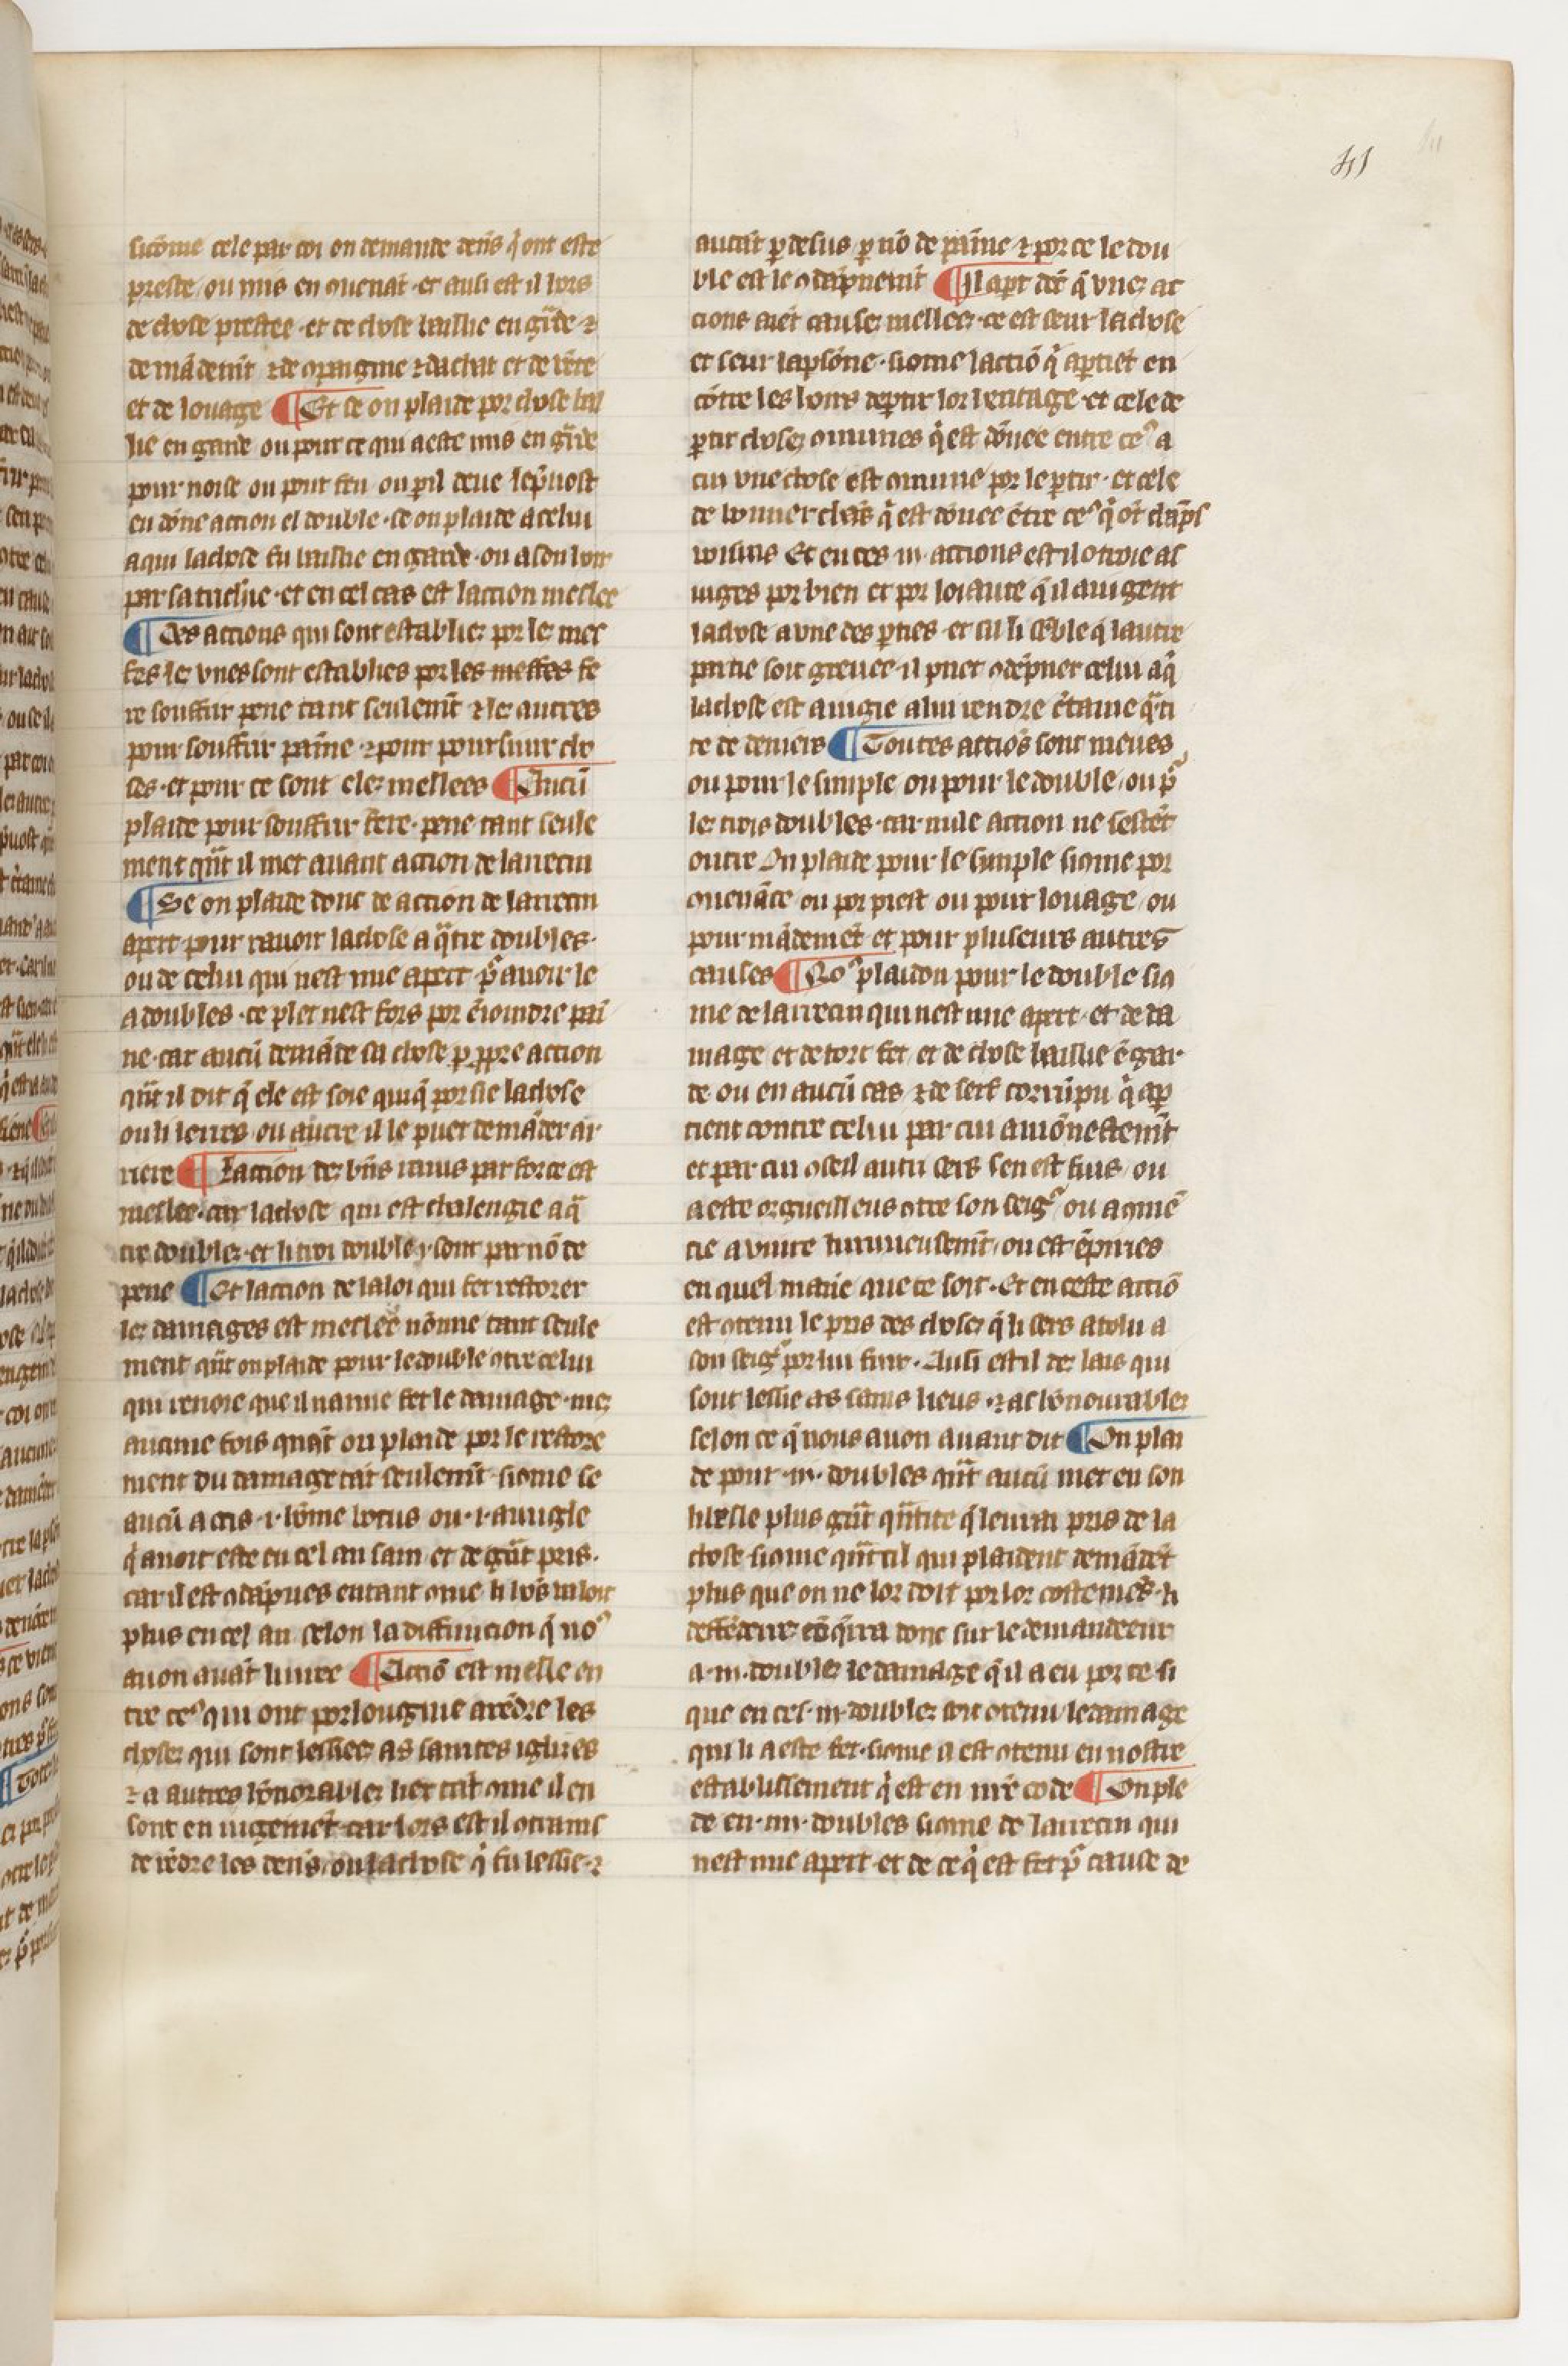 41
sicōme cele par coi on demande den̄s q̇ ont este
preste / ou mis en ꝯuenāt · et ausi est il lors
de chose prestee · et de chose baillie en garde ⁊
de mādem̄t ⁊ de ꝯpaignie ⁊ dachat et de vēte
et de louage ¶ Et se on plaide por chose bail
lie en garde ou pour ce qui a este mis en garde
pour noise ou pour feu ou ꝑil deue le p̄uost
en dōne action el double · se on plaide a celui
a qui la chose fu baillie en garde · ou a son hoir
par sa tricherie · et en cel cas est laction meslee
¶ Des actions qui sont establiez por lez mef
fes lez vnes sont establies por les meffes fe
re souffrir pene tant seulem̄t ⁊ lez autres
pour souffrir paine · ⁊ pour poursuiur cho
ses · et pour ce sont elez mellees ¶ Aucū
plaide pour souffrir fere · pene tant seule
ment qn̄t il met auant action de larrecin
¶ Se on plaide donc de action de larrecin
apert · pour rauoir la chose a q̄tre doubles ·
ou de celui qui nest mie apert · pͬ auoir le
a doubles · ce plet nest fors por ēioindre pai
ne · car aucū demāde sa chose ꝑ ꝓpre action
qn̄t il dit q̄ ele est soie qui q̄ porsie la chose
ou li lerres · ou autre il le puet demāder ar
riere ¶ Laction dez biēs rauis par force est
meslee · car la chose qui est chalengie a q̄
tre doublez · et li troi doublez sont par nō de
pene ¶ Et laction de la loi qui fet restorer
lez damages est meslee nōmie tant seule
ment qn̄t on plaide pour le double ꝯtre celui
qui renoie que il na mie fet le damage · mez
aucune fois quāt on plaide por le restore
ment du damage tāt seulem̄t · sicome se
aucū a ocis · i · home botus ou · i · auugle
q̇ auoit este en cel an sain et de grāt pris ·
car il est ꝯdāpnes en tant ꝯme li hōs valoit
plus en cel an selon la diffinicion q̄ noꝰ
auon auāt liuree ¶ Actiō est mellee en
tre ceꝰ qui ont porlougnie a rēdre les
chosez qui sont lessiez as saintes iglises
⁊ a autres hōnorablez liex tāt ꝯme il en
sont en iugemēt · car lors est il ꝯtrains
de rēdre les den̄s / ou la chose q̇ fu lessie · ⁊
autāt ꝑ desus ꝑ nō de paine ⁊ por ce le dou
ble est le ꝯdāpnem̄t ¶ Il apert dōt q̄ vnez ac
tions aiēt causez mellees · ce est seur la chose
et seur la ꝑsone · sicome lactiō q̇ aꝑtiēt en
cōtre les hoirs deꝑtir lor heritage · et cele de
ꝑtir chosez ꝯmunes q̇ est dōnee entre ceꝰ a
cui vne chose est ꝯmune por le ꝑtir · et cele
de bonner chās q̇ est dōnee ētre ceꝰ q̇ ōt chāps
voisins Et en ces · iii · actions est il otroie as
iuges por bien et por loiaute q̄ il aiugent
la chose a vne des ꝑties · et cil li sēble q̄ lautre
partie soit greuee · il puet ꝯdēpner celui a q̇
la chose est aiugie a lui rendre certaine q̄nti
te de deniers ¶ Toutes actiōs sont meues
ou pour le simple ou pour le double / ou pͬ
lez trois doubles · car nule action ne sestēt
outre On plaide pour le simple sicome por
ꝯuenāce / ou por prest ou pour louage / ou
pour mādemēt et pour pluseurs autres
causes ¶ Noꝰ plaidon pour le double sico
me de larrecin qui nest mie apert · et de da
mage et de tort fet / et de chose baillie ē gar
de · ou en aucū cas ⁊ de serf corrūpu q̇ aꝑ
tient contre celui par cui amōnestem̄t
et par cui ꝯseil autri sers sen est fuis / ou
a este orgueilleus ꝯtre son seigͬ ou a ꝯmē
cie a viure luxurieusem̄t / ou est ēpiries
en quel maniē que ce soit · Et en ceste actiō
est ꝯtenu le pris des chosez q̄ li sers a tolu a
son seigͬ por lui fuir · Ausi est il dez lais qui
sont lessie as sains lieus · ⁊ as hōnourablez
selon ce q̄ nous auon auant dit ¶ On plai
de pour · iii · doubles qn̄t aucū met en son
libelle plus grāt qn̄tite q̄ le urai pris de la
chose · sicome qn̄t cil qui plaident demādēt
plus que on ne lor doit por lor costemēs · li
deffēderres ꝯq̄rra donc sur le demandeeur
a · iii · doublez le damage q̄ il a eu por ce · si
que en ces · iii · doublez soit ꝯtenu le damage
qui li a este fet · sicome il est ꝯtenu en nostre
establissement q̇ est en nr̄e code ¶ On ple
de en · iiii · doubles sicome de larrecin qui
nest mie apert · et de ce q̇ est fet pͬ cause de